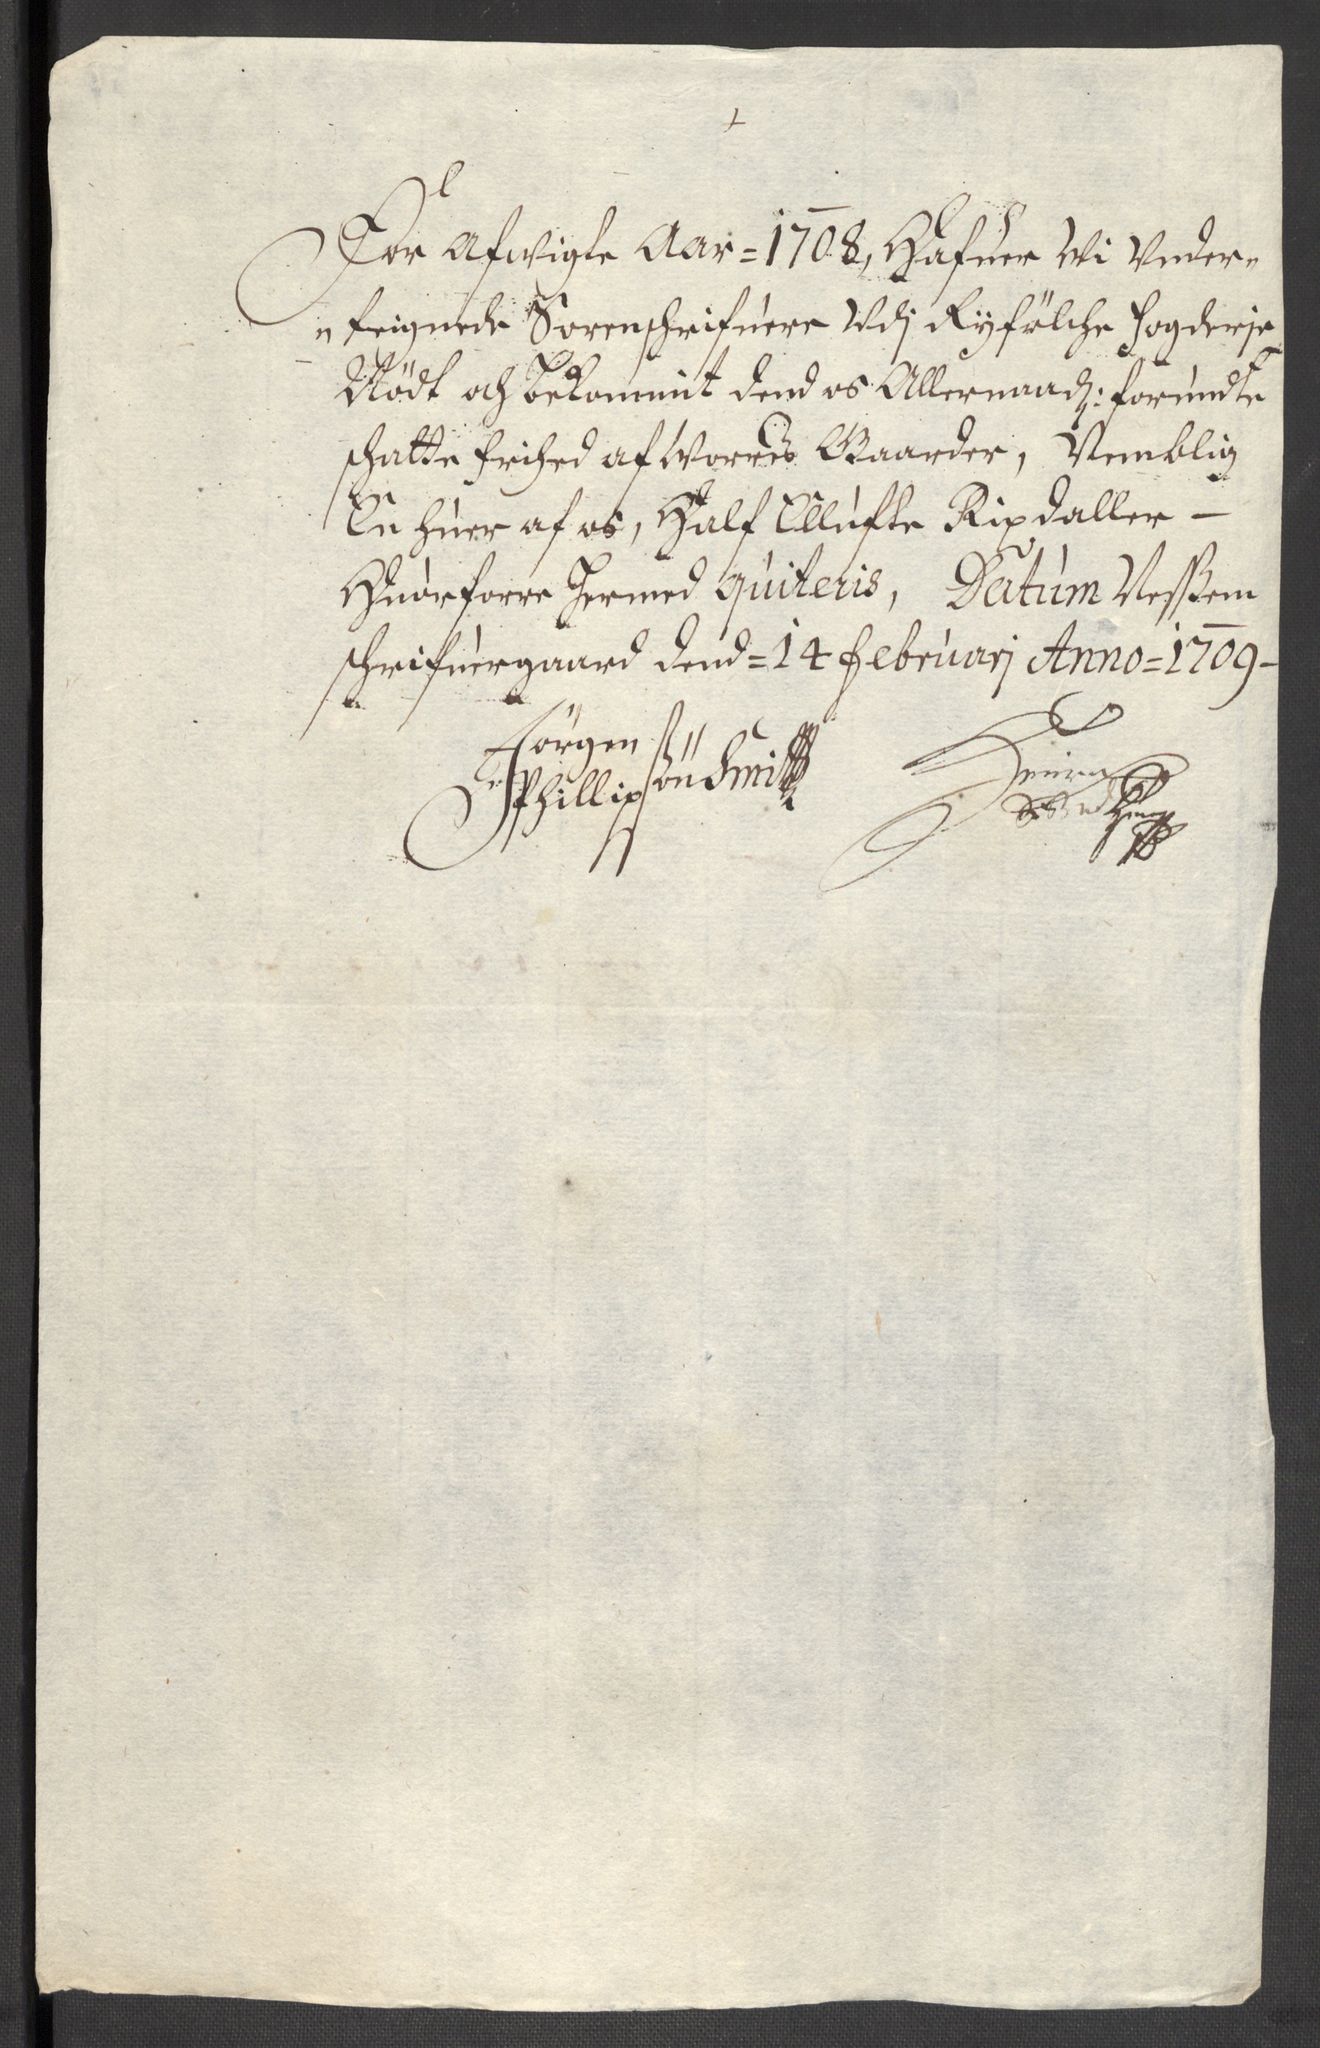 For Afwigte Aar = 1708, Hafuer Wi Vnder=
=teignede Sorenschrifuere Vdj Ryfölche fogderje
Nødt och bekommit dend os Allernaad: forundte
schatte frihed af Worres Gaarder, Nemblig
En huer af os, Half Ellufte Rixdaller —
Huorforre hermed quiteris, Datum Nessem
schrifuergaard dend = 14 Februarj Anno = 1709 –
Jörgen
Phillipsön Smit